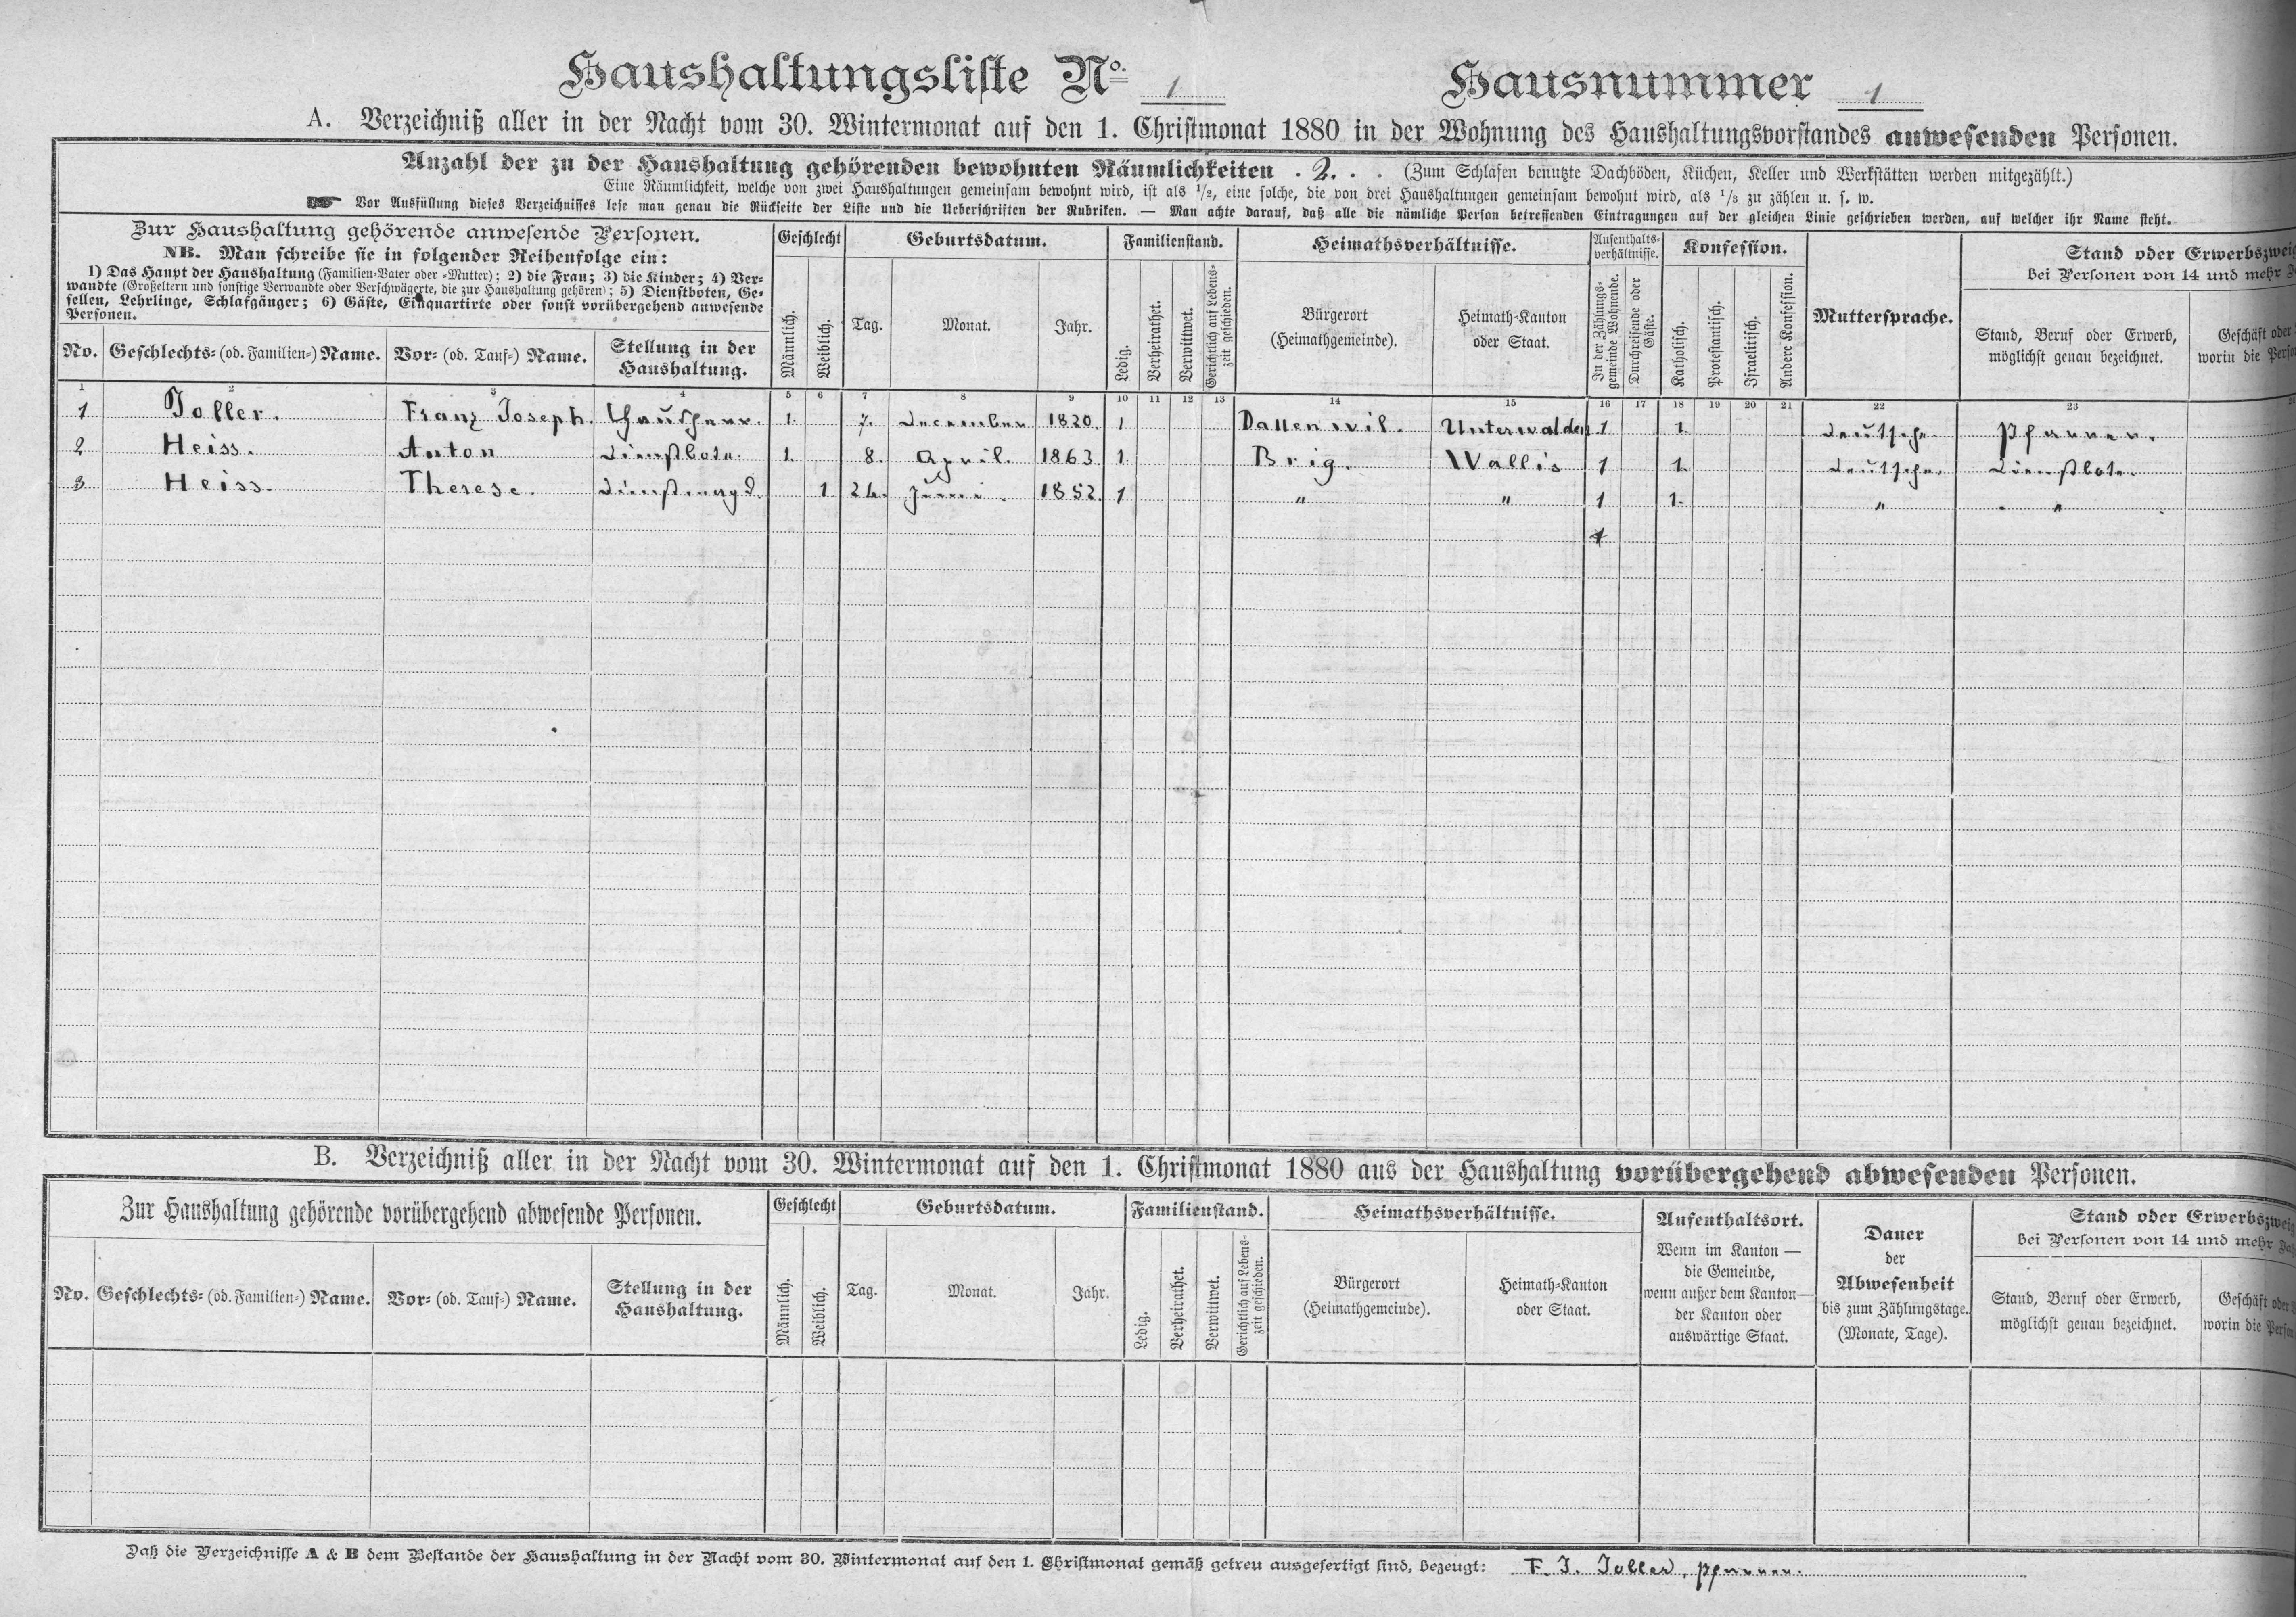 Haushaltungsliste No. 1 Hausnummer 1
A. Verzeichniß aller in der Nacht vom 30. Wintermonat auf den 1. Christmonat 1880 in der Wohnung des Haushaltungsvorstandes anwesenden Personen.
Anzahl der zu der Haushaltung gehörenden bewohnten Räumlichkeiten . 2. . . (Zum Schlafen benutzte Dachböden, Küchen, Keller und Werkstätten werden mitgezählt.)
Eine Räumlichkeit, welche von zwei Haushaltungen gemeinsam bewohnt wird, ist als 1/2, eine solche, die von drei Haushaltungen gemeinsam bewohnt wird, als 1/3 zu zählen u. s. w.
☛ Vor Ausfüllung dieses Verzeichnisses lese man genau die Rückseite der Liste und die Ueberschriften der Rubriken. — Man achte darauf, daß alle die nämliche Person betreffenden Eintragungen auf der gleichen Linie geschrieben werden, auf welcher ihr Name steht.
Zur Haushaltung gehörende anwesende Personen.
NB. Man schreibe sie in folgender Reihenfolge ein:
1) Das Haupt der Haushaltung (Familien-Vater oder -Mutter); 2) die Frau; 3) die Kinder; 4) Ver-
wandte (Großeltern und sonstige Verwandte oder Verschwägerte, die zur Haushaltung gehören); 5) Dienstboten, Ge-
sellen, Lehrlinge, Schlafgänger; 6) Gäste, Einquartirte oder sonst vorübergehend anwesende
Personen.
No. Geschlechts- (od. Familien-) Name. Vor- (od. Tauf-) Name. Stellung in der
Haushaltung.
Geschlecht
Männlich. Weiblich.
Geburtsdatum.
Tag. Monat. Jahr.
Familienstand.
Ledig. Verheirathet. Verwittwet. Gerichtlich auf Lebens-
zeit geschieden.
Heimathsverhältnisse.
Bürgerort
(Heimathgemeinde).
Heimath-Kanton
oder Staat.
Aufenthalts-
verhältnisse.
In der Zählungs-
gemeinde Wohnende.
Durchreisende oder
Gäste.
Konfession.
Katholisch. Protestantisch. Israelitisch. Andere Konfession.
Muttersprache.
Stand oder Erwerbszweig
bei Personen von 14 und mehr
Stand, Beruf oder Erwerb,
möglichst genau bezeichnet.
Geschäft oder
worin die
1 2 3 4 5 6 7 8 9 10 11 12 13 14 15 16 17 18 19 20 21 22 23
1 Joller. Franz Joseph. Hausherr. 1. 7. December 1820. 1 Dallenwil. Unterwalden 1 1. deutsche Pfarrer.
2 Heiss. Anton Dienstbote. 1. 8. April. 1863. 1. Brig. Wallis 1 1. deutsche. Dienstbote.
3 Heiss. Therese. Dienstmagd. 1 24. Juni. 1852. 1 " " 1 1. " "
B. Verzeichniß aller in der Nacht vom 30. Wintermonat auf den 1. Christmonat 1880 aus der Haushaltung vorübergehend abwesenden Personen.
Zur Haushaltung gehörende vorübergehend abwesende Personen.
No. Geschlechts- (od. Familien-) Name. Vor- (od. Tauf-) Name. Stellung in der
Haushaltung.
Geschlecht
Männlich. Weiblich.
Geburtsdatum.
Tag. Monat. Jahr.
Familienstand.
Ledig. Verheirathet. Verwittwet. Gerichtlich auf Lebens-
zeit geschieden.
Heimathsverhältnisse.
Bürgerort
(Heimathgemeinde).
Heimath-Kanton
oder Staat.
Aufenthaltsort.
Wenn im Kanton —
die Gemeinde,
wenn außer dem Kanton—
der Kanton oder
auswärtige Staat.
Dauer
der
Abwesenheit
bis zum Zählungstage.
(Monate, Tage).
Stand oder Erwerbszweig
bei Personen von 14 und mehr
Stand, Beruf oder Erwerb,
möglichst genau bezeichnet.
Geschäft oder
worin die
Daß die Verzeichnisse A & B dem Bestande der Haushaltung in der Nacht vom 30. Wintermonat auf den 1. Christmonat gemäß getreu ausgefertigt sind, bezeugt: F. J. Joller, Pfarrer.